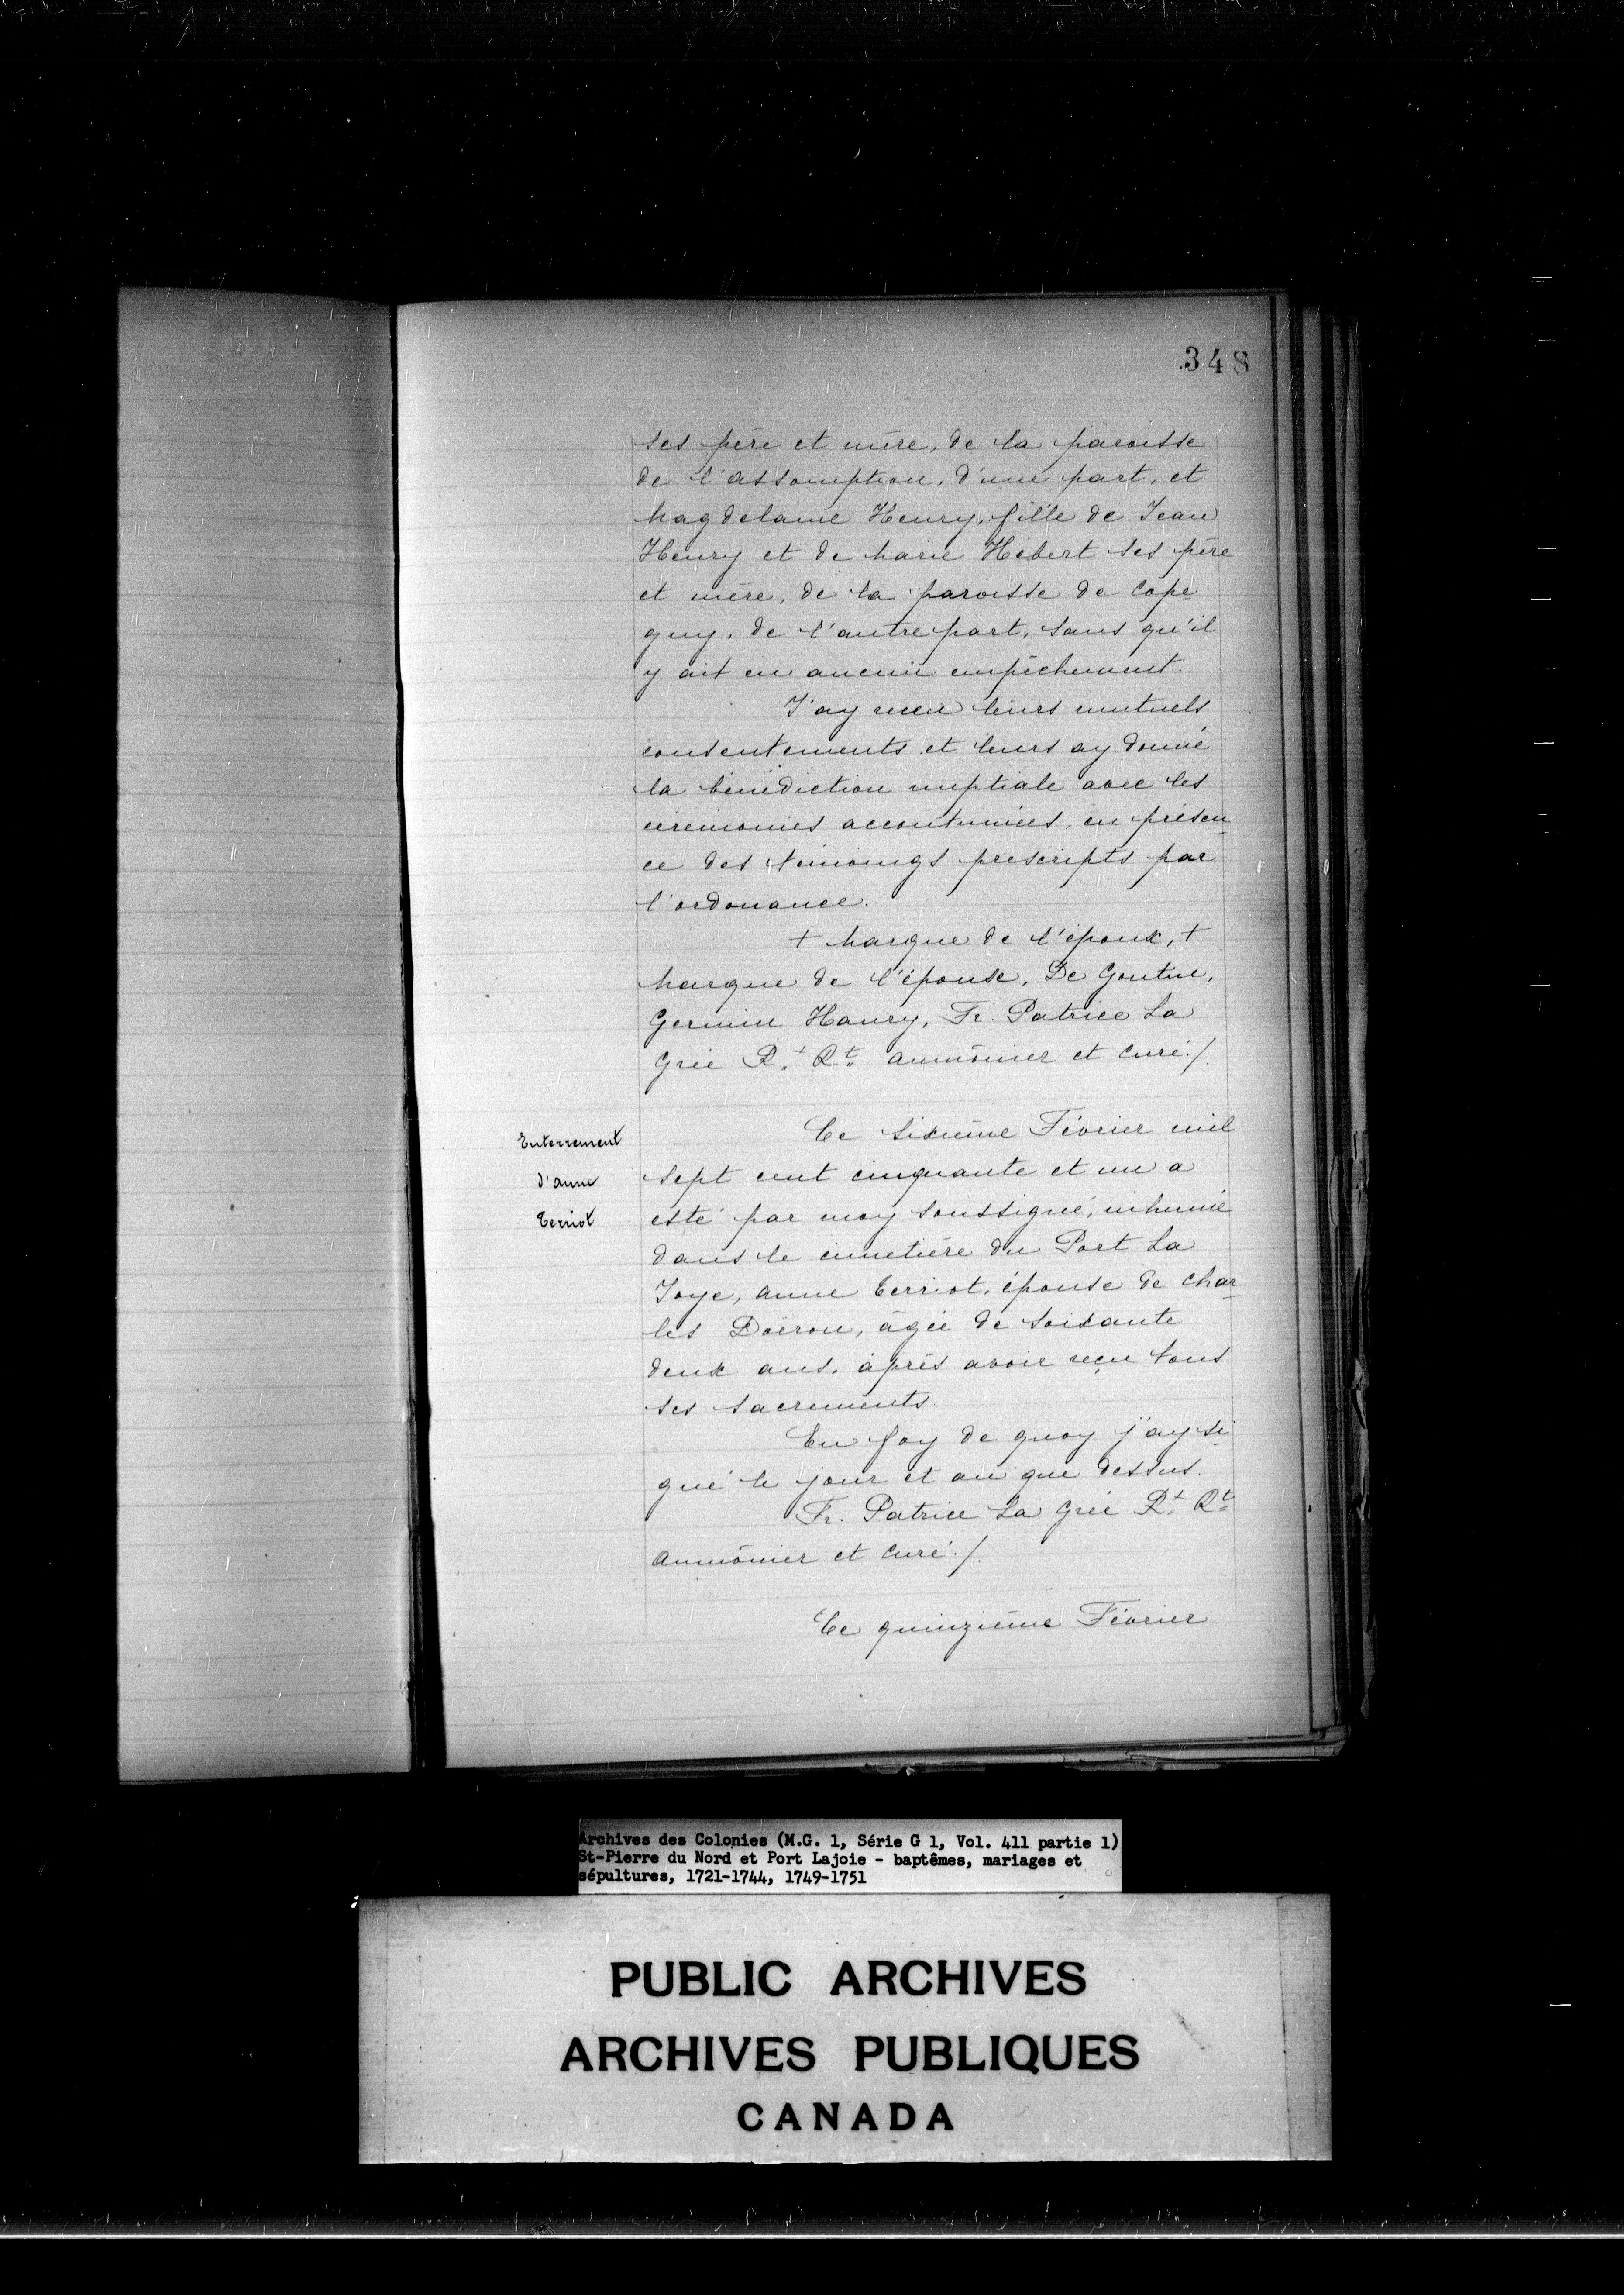 348
ses père et mère, de la paroisse
de l'assomption, d'une part, et
Magdelaine Henry, fille de Jean
Henry et de Marie Hébert ses père
et mère, de la paroisse de Cope
guy, de l'autre part, sans qu'il
y ait eu aucun empêchement.
J'ay receu leurs mutuels
consentements et leurs ay donné
la bénédiction nuptiale avec les
cérémonies accoutumées, en présen
ce des témoings prescripts par
l'ordonance.
+ Marque de l'époux, +
Marque de l'épouse, De Goutin,
Germin Hanry, Fr. Patrice La
Grée Rt. Rt. aumônier et curé./.
Enterrement
d'anne
Terriot
Ce sixième Février mil
sept cent cinquante et un a
esté par moy soussigné, inhumé
dans le cimetière du Port La
Joye, anne Terriot, épouse de Char
les Doëron, âgée de soixante
deux ans, après avoir reçu tous
ses sacrements.
En foy de quoy j'ay si
gné le jour et an que dessus.
Fr. Patrice La Grée Rt. Rt.
aumônier et curé./.
Ce quinzième Février
Archives des Colonies (M.G. 1, Série G 1, Vol. 411 partie 1)
St-Pierre du Nord et Port Lajoie - baptêmes, mariages et
sépultures, 1721-1744, 1749-1751
PUBLIC ARCHIVES
ARCHIVES PUBLIQUES
CANADA